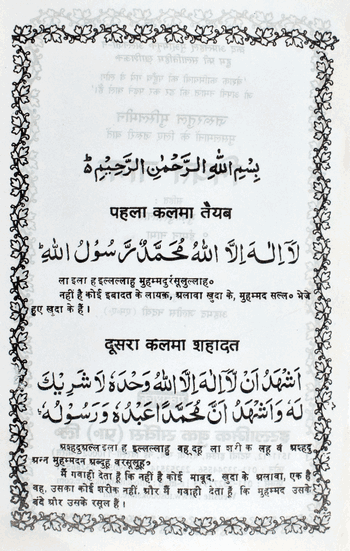 بِسْمِ اللهِ الرَّحْمٰنِ الرَّحِيْمِ ط
पहला कलमा तैयब
لَآ اِلٰهَ اِلَّا اللهُ مُحَمَّدٌ رَّسُوْلُ اللهِ ط
ला इला ह इल्लल्लाहु मुहम्मदुर्रसूलुल्लाह॰
नहीं है कोई इबादत के लायक़, अलावा खुदा के, मुहम्मद सल्ल॰ भेजे
हुए खुदा के हैं।
दूसरा कलमा शहादत
اَشْهَدُ اَنْ لَّآ اِلٰهَ اِلَّا اللهُ وَحْدَهٗ لَا شَرِيْكَ
لَهٗ وَاَشْهَدُ اَنَّ مُحَمَّدًا عَبْدُهٗ وَرَسُوْلُهٗ ط
अश्हदुअल्लाइला ह इल्लल्लाहु वह्दहू ला शरी क लहू व अश्हदु
अन्न मुहम्मदन अब्दुहू वरसूलुहू॰
मैं गवाही देता हूँ कि नहीं है कोई माबूद, खुदा के अलावा, एक है
वह, उसका कोई शरीक नहीं, और मैं गवाही देता हूँ, कि मुहम्मद उसके
बंदे और उसके रसूल हैं।